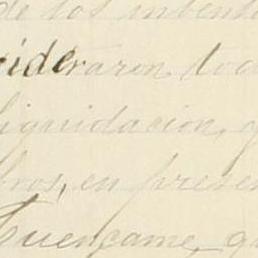 de los invent
sideraron tod
liquidacion, q
bros, en presen
Cuencame, qu